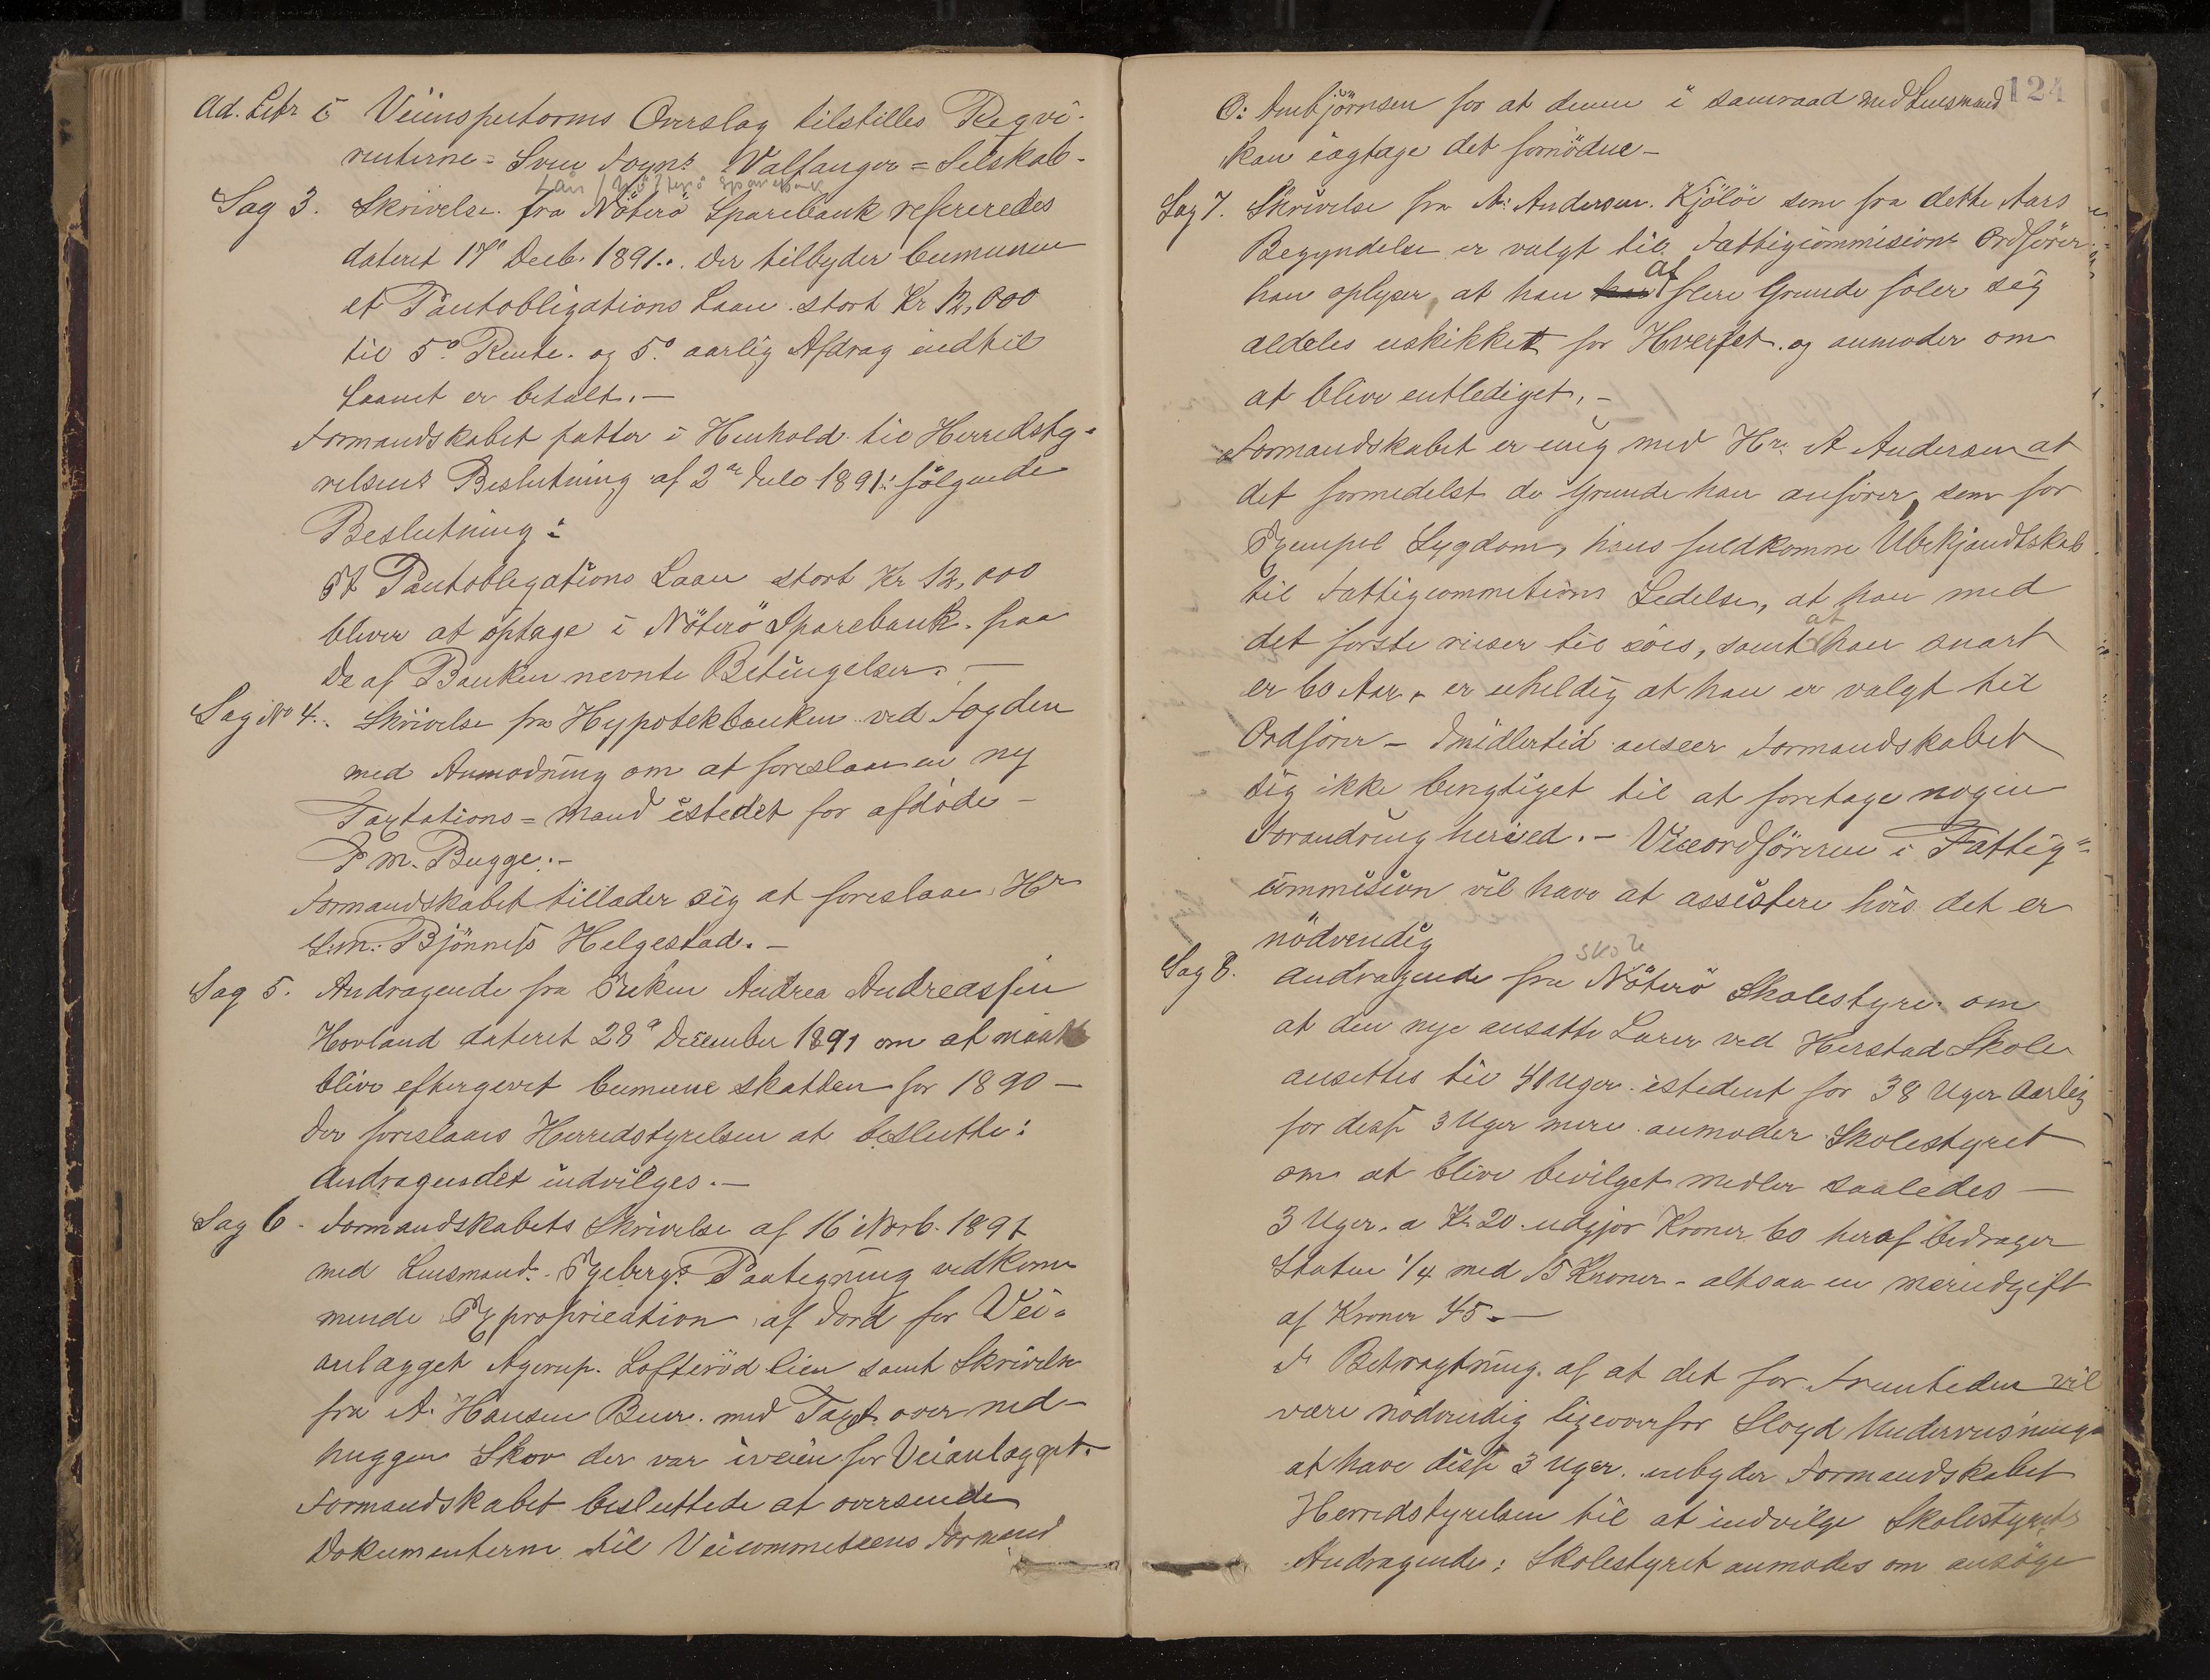 Ad. Litr i Veiinspektorens Overslag tilstilles Reqvi-
renterne = Sven Foyns Hvalfanger = Selskab -
Lån / Nøtterø Sparebank
Sag 3. Skrivelse fra Nöterö Sparebank refereredes
dateret 17de Decb. 1891.. der tilbyder Comunen
et Pantobligations Laan stort Kr 12,000
til 5% Rente. og 5% aarlig Afdrag indtil
Laanet er betalt. —
Formandskabet fatter i Henhold til Herredsty-
relsens Beslutning af 2den Juli 1891: fölgende
Beslutning:
Et Pantobligations Laan stort Kr 12,000
bliver at optage i Nöterö Sparebank. paa
de af Banken nevnte Betingelser. —
Sag No 4.. Skrivelse fra Hypotekbanken ved Fogden
med Anmodning om at foreslaa en ny
Taxtations = Mand istedet for afdöde -
P. M. Bugge. -
Formandskabet tillader sig at foreslaa Hr
Lm: Bjönnes Helgestad. -
Sag 5. Andragende fra Enken Andrea Andreassen
Hovland dateret 28de December 1891 om at maatte
blive eftergivet Comune skatten for 1890 -
Der foreslaaes Herredstyrelsen at beslutte:
Andragendet indvilges. -
Sag 6 - Formandskabets Skrivelse af 16 Novb. 1891
med Lensmand. Ygebergs Paategning vedkom
mende Expropriation af Jord for Vei-
anlægget Agerup. Lofterödlien samt Skrivelse
fra A. Hansen Buer. med Taxt over ned-
huggen Skov der var iveien for Veianlægget.
Formandskabet besluttede at oversende
Dokumenterne til Veicommiteens Formand
124
O: Ambjörnsen for at denne i samraad med Lensmand
kan iagtage det fornödne -
Sag 7. Skrivelse fra A: Andersen. Kjölöe som fra dette Aars
Begyndelse er valgt til Fattigcommisions Ordförer.
han oplyser, at han af flere Grunde föler sig
aldeles uskikket for Hvervet. og anmoder om
at blive entlediget. -
Formandskabet er enig med Hr: A Andersen at
det formedelst de Grunde han anförer, som for
Exempel Sygdom, hans fuldkomne Ubekjendtskab
til Fattigcommitions Ledelse, at han med
det förste reiser til söes, samt at han snart
er 60 Aar, - er uheldig at han er valgt til
Ordförer - Imidlertid anseer Formandskabet
sig ikke beregtiget til at foretage nogen
Forandring herived. - Viceordföreren i Fattig-
commision vil have at assistere hvis det er
nödvendig
skole
Sag 8. Andragende fra Nöterö Skolestyre om
at den nye ansatte Lærer ved Herstad Skole
ansettes til 41 Uger istedent for 38 Uger Aarlig
for disse 3 Uger mere anmoder Skolestyret
om at blive bevilget medler saaledes —
3 Uger. a Kr 20 udgjör Kroner 60 heraf bidrager
Staten 1/4 med 15 Kroner - altsaa en merudgift
af Kroner 45. —
I Betragtning. af at det for Fremtiden vil
være nödvendig ligeoverfor Slöyd Undervisning
at have disse 3 Uger. indbyder Formandskabet
Herredstyrelsen til at indvilge Skolestyrets
Andragende: Skolestyret anmodes om ansöge